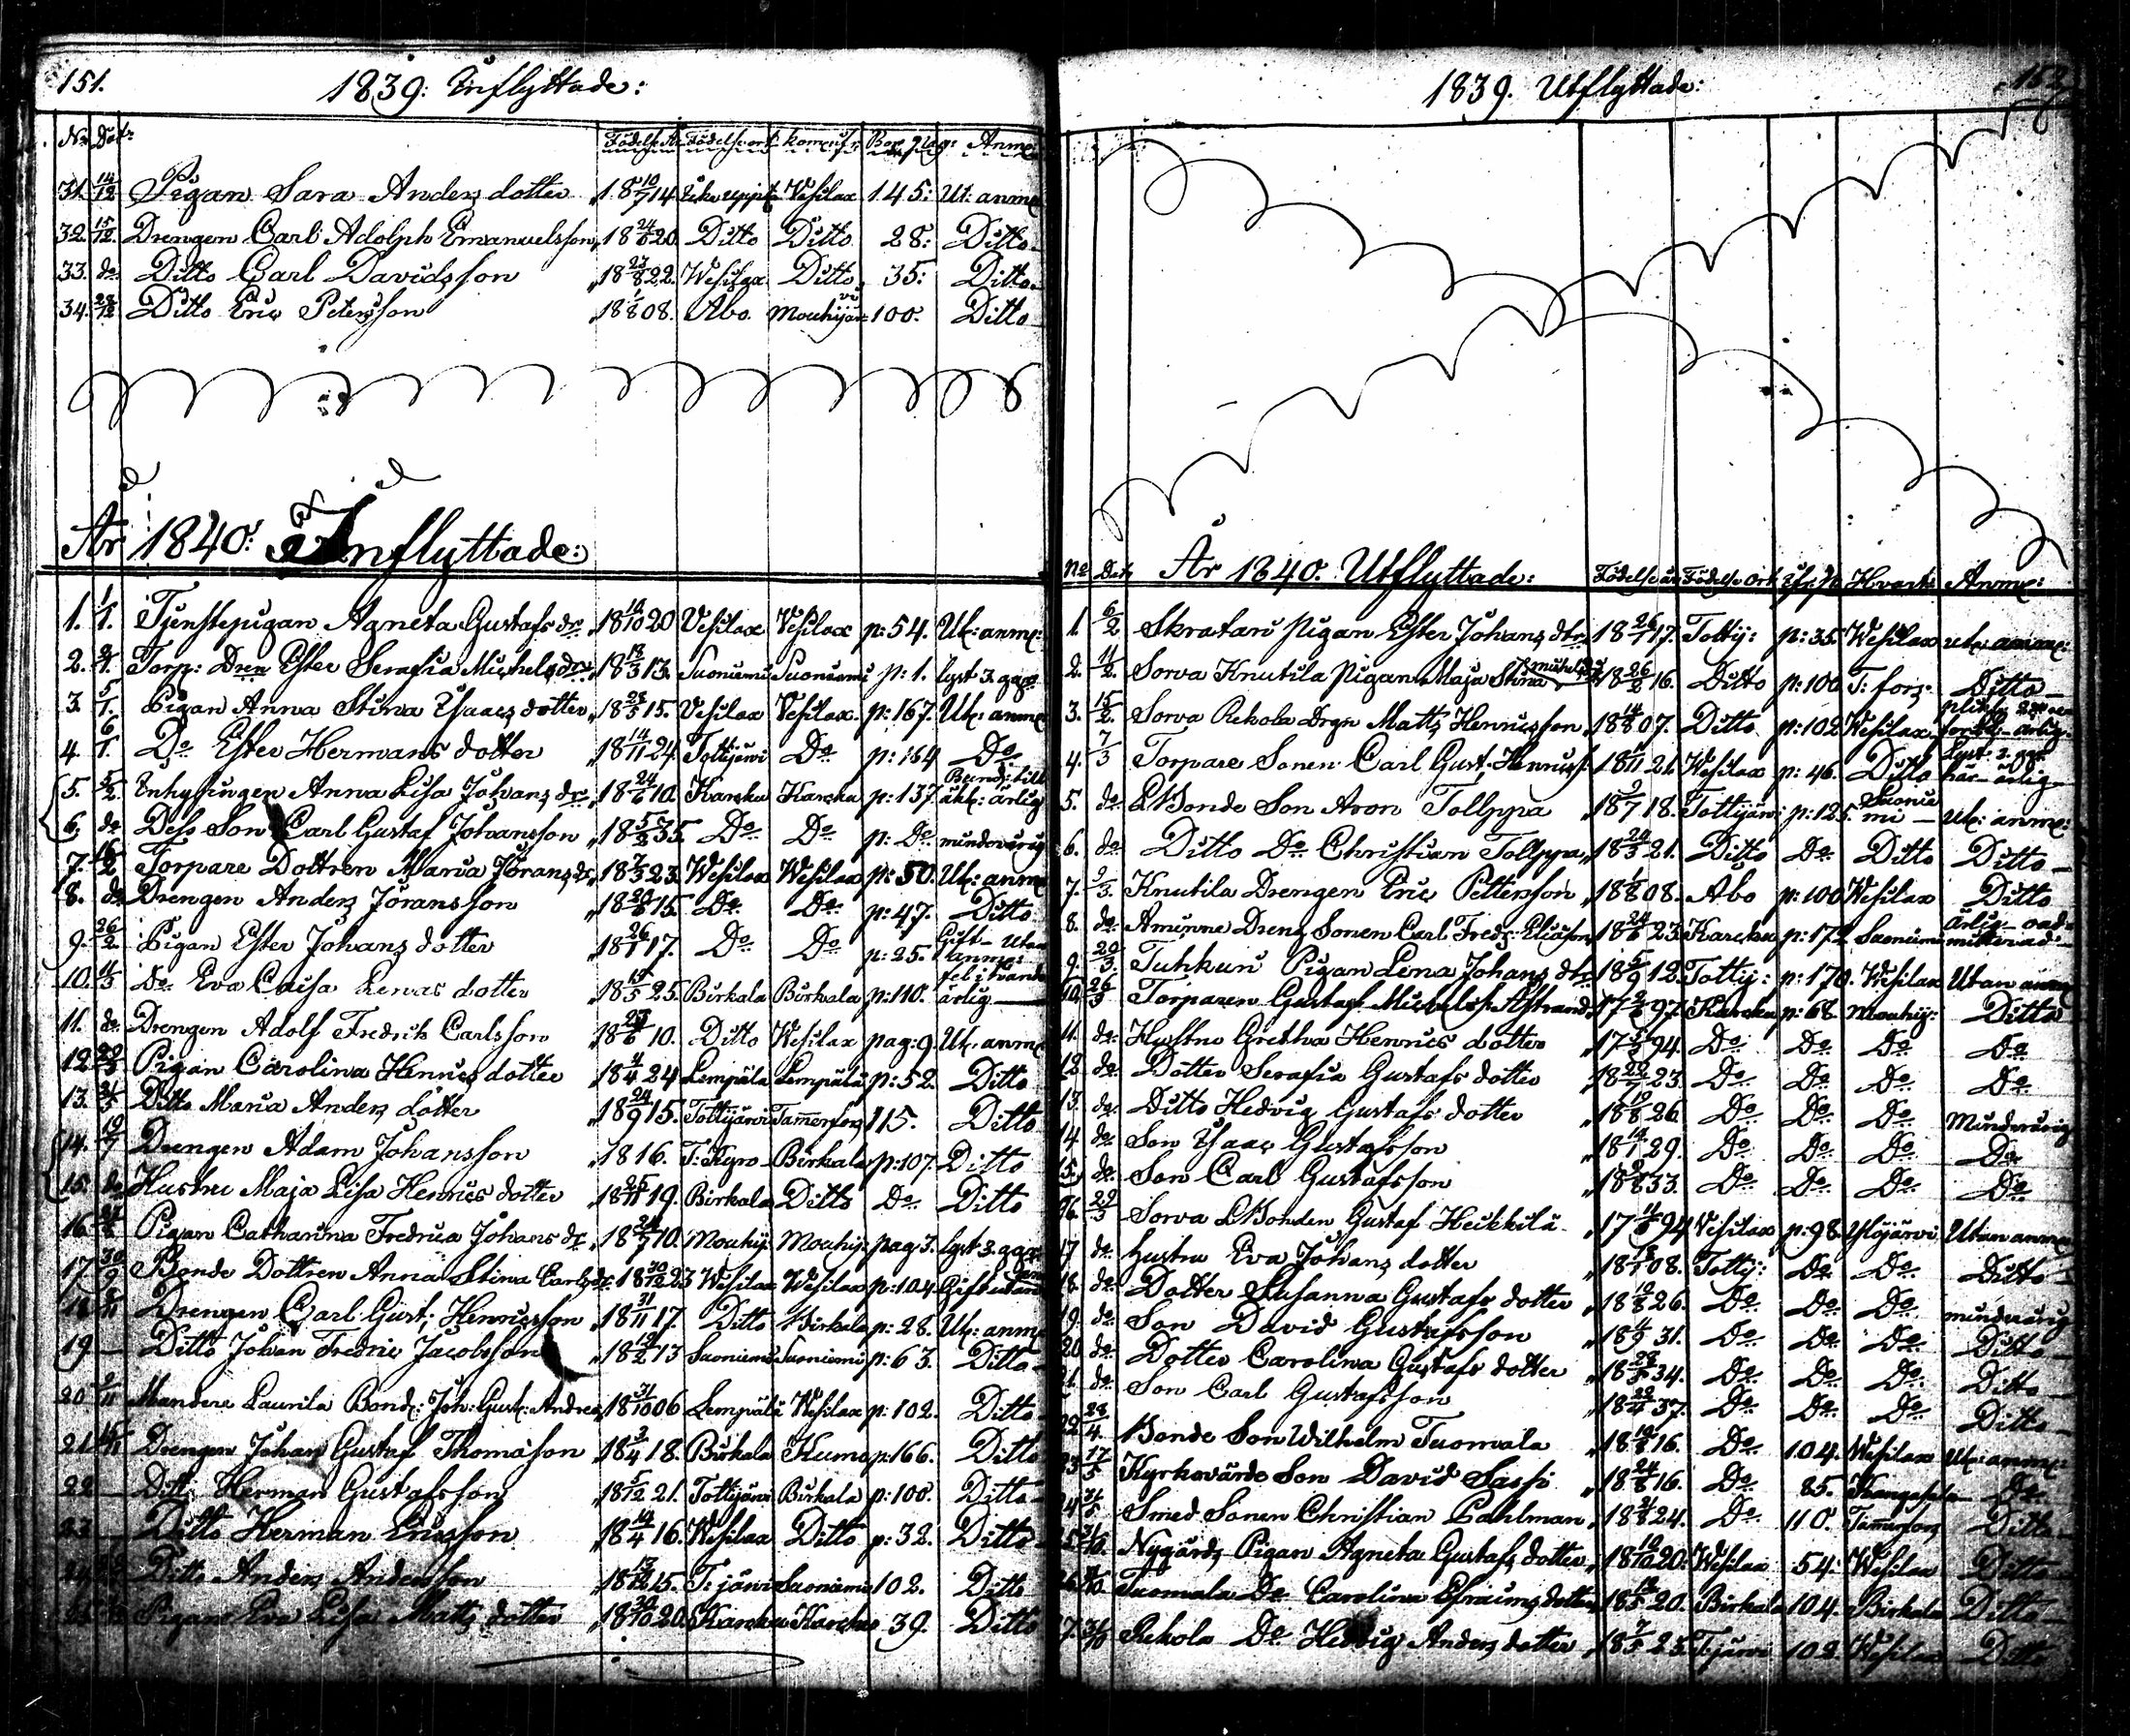 151.
1839: Inflyttade:
No Dat: Födelse År Födelse ort komenfr: Bor pag: Anm:
31. 14/12 Pigan Sara Anders dotter 18 10/7 14 Vesilax 145: Ut: anm:
32. 15/12 Drengen Carl Adolph Emanuelsson 18 24/6 20 Ditto Ditto 28: Ditto
33. do Ditto Carl Davidsson 18 23/8 22. Wesilax Ditto 35: Ditto
34. 28/12 Ditto Eric Petersson 18 1/8 08. Abo Mouhijärvi 100. Ditto
År 1840: Inflyttade:
1. 1/1. Tjenstepigan Agneta Gustafs dr 18 10/10 20 Vesilax Vesilax p: 54. Ut: anm:
2. Torp: Dren Ester Serafia Michels dr 18 13/3 13. Suoniemi Suoniemi p: 1. lyst 3. ggr
3. 5/1. Pigan Anna Stina Isaacs dotter 18 23/5 15. Vesilax Vesilax. p: 167. Ut: anm:
4. 6/1. Do Ester Hermans dotter 18 14/11 24. Tottijärvi Do p: 164 Do
5. 5/2. Inhysingen Anna Lisa Johans dr 18 24/6 10. Karcku Karcku p: 137. äkt: ärlig
6. do Dess Son Carl Gustaf Johansson 18 5/2 35. Do Do p: Do minderårig
7. 16/2 Torpare Dottren Maria Jörans dr 18 7/3 23. Wesilax Wesilax p: 50. Ut: anm:
8. do Drengen Anders Jöransson 18 15. Do Do p: 47. Ditto
9. 26/2. Pigan Ester Johans dotter 18 26/1 17. Do Do p: 25. Gift- Utan anm:
10. 11/3 Do Eva Caisa dotter 18 15/5 25. Birkala Birkala p: 110. ärlig
11. do Drengen Adolf Fredrik Carlsson 18 10. Ditto Wesilax pag: 9. Ut: anm:
12. 29/3 Pigan Carolina Henrics dotter 18 4/4 24 Lempälä Lempälä p: 52. Ditto
13. Ditto Maria Anders dotter 18 24/9 15. Tottijärvi Tammerfors 115. Ditto
14. Drengen Adam Johansson 1816. T: Kyro Birkala p: 107. Ditto
15. do Hustru Maja Lisa Henrics dotter 18 19. Birkala Ditto Do Ditto
16. Pigan Catharina Fredrica Johans dr 18 10. Mouhij. Mouhij: pag: 3. lyst 3. ggr
17. 30/9 Bonde Dottren Anna Stina Carls dr 18 30/12 23 Wesilax Wesilax p: 104. Gift utan
18. Drengen Carl Gust: Henricsson 18 31/11 17. Ditto Birkala p: 28. Ut: anm:
19 — Ditto Johan Fredric Jacobsson 18 19/2 13 Suoniemi Suoniemi p: 63. Ditto
20. 2/11 Mandere Laurila Bond: Joh: Gust: 18 31/10 06 Lempälä Wesilax p: 102. Ditto
21 Drengen Johan Gustaf Thomasson 18 2/4 18. Birkala Kumo p: 166. Ditto
22 — Ditto Herman Gustafsson 18 5/12 21. Tottijärvi Birkala p: 100. Ditto
23 — Ditto Herman Ericsson 18 14/4 16. Wesilax Ditto p: 32. Ditto
Ditto Anders Andersson 18 13/12 15. T: järvi Suoniemi 102. Ditto
Pigan Eva Lisa Matts dotter 18 30/10 20. Karcku Karcku 39. Ditto
1839. Utflyttade: 153
No Dat År 1840. Utflyttade: Födelse år Födelse ort Hvart: Anm:
1. 6/2 Skratari pigan Ester Johans dtr 18 26/1 17. Tottij: p: 35. Wesilax ut: anm:
2. 11/2. Sorva Knutila Pigan Maja Stina Michelsdr 18 26/2 16. Ditto p: 100 T: fors. Ditto
3. 15/2. Sorva Rekola Drgn Matts Henricsson 18 14/8 07. Ditto p: 102 Wesilax
4. 7/3 Torpare Sonen Carl Gust: Henricss: 18 1/11 21. Wesilax p: 46. Ditto Lyst 3. ggr här - ärlig
5. do LBonde Son Aron Tolppa 18 2/7 18. Tottijärvi p: 125. Suoniemi Ut: anm:
6. do Ditto Do Christian Tolppa 18 20/3 21. Ditto Do Ditto Ditto
7. 9/3. Knutila Drengen Eric Pettersson 18 1/8 08. Abo p: 100 Wesilax Ditto
8. do Amänne Dreng Sonen Carl Fredr: Eliasson 18 24/6 23. Karcku p: 172 Suoniemi Ärlig - oadmitterad
9. 20/3. Tuhkuri Pigan Lena Johans dtr 18 5/9 12. Tottij: p: 170. Wesilax Utan anm:
10. 26/3 Torparen Gustaf Michelss: Åstrand 17 97. Karcku p: 68 Mouhij: Ditto
11. do Hustru Gretha Henrics dotter 17 94. Do Do Do Do
12. do Dotter Serafia Gustafs dotter 18 23. Do Do Do Do
13. do Ditto Hedvig Gustafs dotter 18 19/8 26. Do Do Do Minderårig
14. do Son Isaac Gustafsson 18 14/1 29. Do Do Do Do
15. do Son Carl Gustafsson 18 33. Do Do Do Do
16. 29/3 Sorva LBonden Gustaf Heikkilä 17 94 Vesilax p: 98. Ylöjärvi Utan anm:
17 do Hustru Eva Johans dotter 18 08. Tottij: Do Do Ditto
18. do Dotter Susanna Gustafs dotter 18 26. Do Do Do minderårig
19. do Son David Gustafsson 18 31. Do Do Do Ditto
20. do Dotter Carolina Gustafs dotter 18 34. Do Do Do Ditto
21. do Son Carl Gustafsson 18 37. Do Do Do Ditto
22 28/4 Bonde Son Wilhelm Tuomala 18 16. Do 104. Wesilax Ut: anm:
23 17/5 Kyrkovärds Son David Sassi 18 24/8 16. Do 85. Kangasala Do
24 Smed Sonen Christian Pahlman 18 24. Do 110. Tammerfors Ditto
25 Nygårds Pigan Agneta Gustafs dotter 18 10/10 20. Wesilax 54: Wesilax Ditto
26 Tuomala Do Carolina Efraims dotter 18 20. Birkala 104. Birkala Ditto
27. Rekola Do Hedvig Anders dotter 18 7/5 25. T:järvi 102. Wesilax Ditto